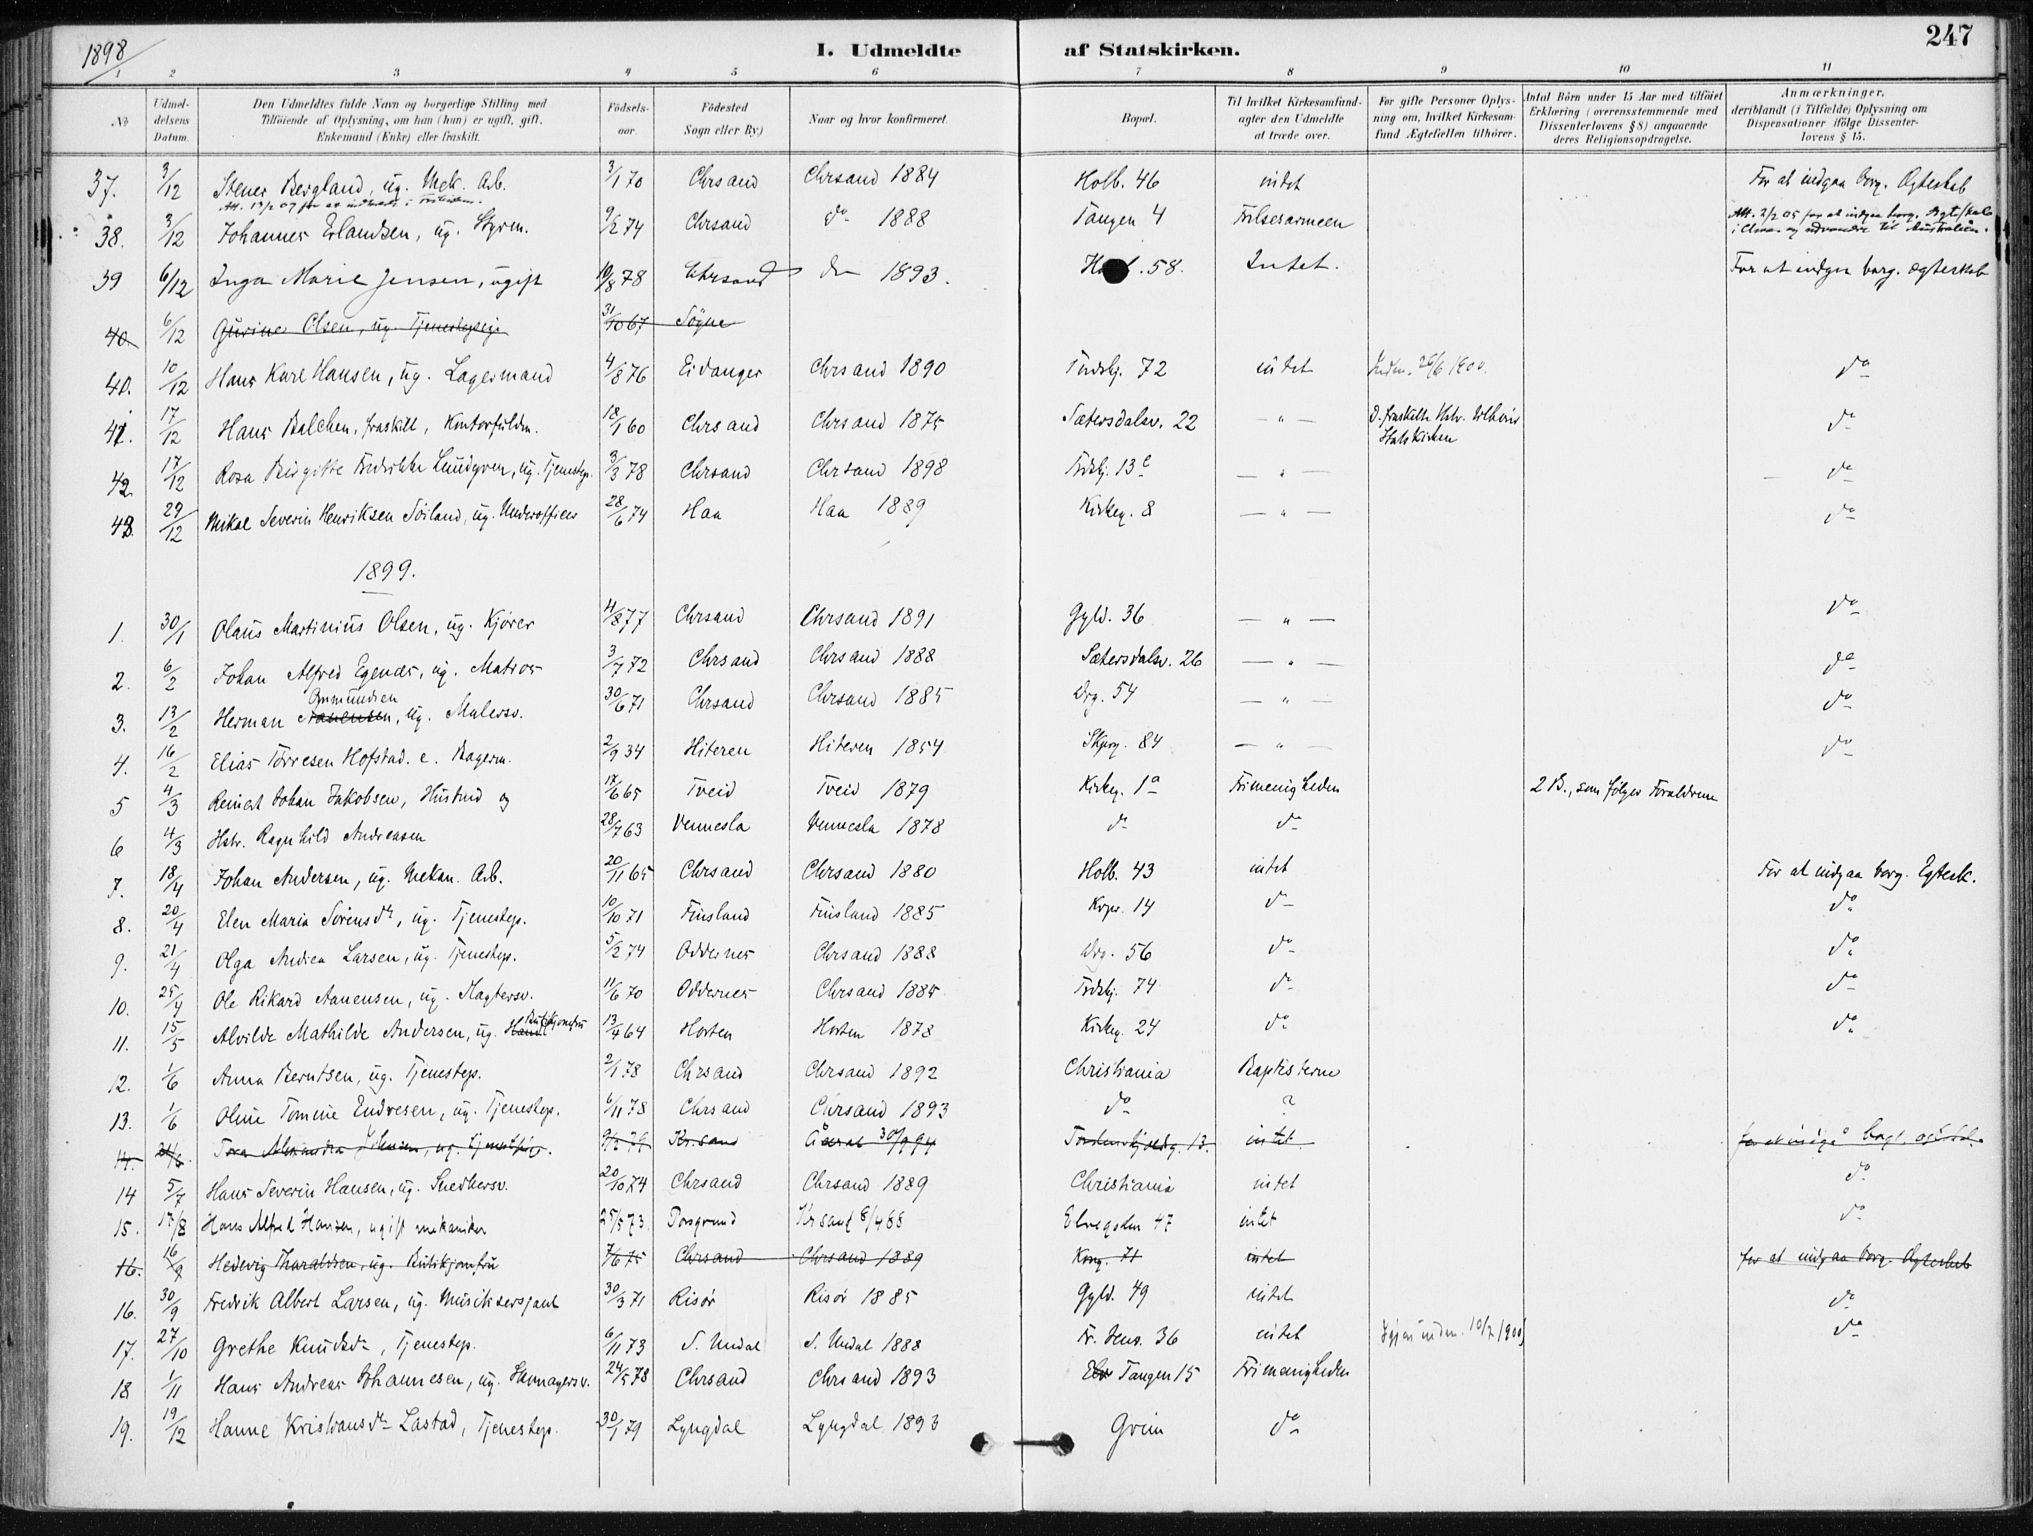 1898
I. Udmeldte af Statskirken.
247
1 2 3 4 5 6 7 8 9 10 11
No
Udmeldelsens Datum.
Den Udmeldtes fulde Navn og borgerlige Stilling med Tilføiende af Oplysning, om han (hun) er ugift, gift, Enkemand (Enke) eller fraskilt.
Födselsaar.
Födested Sogn eller By)
Naar og hvor konfirmeret.
Bopæl.
Til hvilket Kirkesamfund agter den Udmeldte at træde over.
For gifte Personer Oplysning om, hvilket Kirkesamfund Ægtefællen tilhörer.
Antal Börn under 15 Aar med tilföiet Erklæring (overensstemmende med Dissenterlovens § 8) angaaende deres Religionsopdragelse.
Anmærkninger, deriblandt (i Tilfælde) Oplysning om Dispensationer ifölge Dissenterlovens § 15.
37. 3/12 Stener Bergland, ug. Mek. Arb. 3/1 70 Chrsand Chrsand 1884 Holb. 46 intet For at indgaa borg. Ægteskab
38. 3/12 Johannes Erlandsen, ug. Styrm. 9/2 74 Chrsand do 1888 Tangen 4 Frelsesarmeen Att. 2/2 05 for at indgaa borg. Ægteskab
og udvandre til Australien.
39 6/12 Inga Marie Jensen, ugift 10/8 78 Chrsand do 1893. 58. Intet. For at indgaa borg. ægteskab
40. 6/12 Gurine Olsen, ug. Tjenestepige 31/10 67 Søgne
40. 10/12 Hans Karl Hansen, ug. Lagermand 4/8 76 Eidanger Chrsand 1890 Tordskj. 72 intet Indm. 26/6 1900. do
41. 17/12 Hans Balchen, fraskilt, Kontorfuldm. 18/1 60 Chrsand Chrsand 1875 Sætersdalsv. 22 — " — D. fraskilte Hstr. tilhører Statskirken do
42. 17/12 Rosa Birgitte Fredrikke Lundgren, ug. Tjenestep. 3/3 78 Chrsand Chrsand 1898 Trdskj. 13c — " — do
43. 29/12 Mikal Severin Henriksen Söiland, ug. Underofficer 28/6 74 Haa Haa 1889 Kirkeg. 8 — " — do
1899.
1. 30/1 Olaus Martinius Olsen, ug. Kjører 4/8 77 Chrsand Chrsand 1891 Gyld. 36 — " — do
2. 6/2 Johan Alfred Egenæs, ug. Matros 3/7 72 Chrsand Chrsand 1888 Sætersdalsv. 26 — " — do
Ommundsen
3. 13/2 Herman Aanensen, ug. Malersv. 30/6 71 Chrsand Chrsand 1885 Drg. 54 — " — do
4. 16/2 Elias Tørresen Hofstad. e. Bagerm. 2/9 34 Hiteren Hiteren 1854 Skprg. 84 — " — do
5 4/3 Reinert Johan Jakobsen, Husmd og 17/6 65 Tveid Tveid 1879 Kirkeg. 1a Frimenigheden 2 B., som følger Forældrene
6 4/3 Hstr. Ragnhild Andreasen 28/7 63 Vennesla Vennesla 1878 do do
7. 18/4 Johan Andersen, ug. Mekan. Arb. 20/11 65 Chrsand Chrsand 1880 Holb. 43 intet For at indgaa borg. Egtesk.
8. 20/4 Elen Maria Sørensdr, ug. Tjenestep. 10/10 71 Finsland Finsland 1885 Kopr. 14 do do
9. 21/4 Olga Andrea Larsen, ug. Tjenestep. 5/2 74 Oddernes Chrsand 1888 Drg. 56 do do
10. 25/4 Ole Rikard Aanensen, ug. Slagtersv. 11/6 70 Oddernes Chrsand 1885 Trdskj. 74 do do
11. 15/5 Alvilde Mathilde Andersen, ug. Butikjomfru 13/4 64 Horten Horten 1878 Kirkeg. 24 do do
12. 1/6 Anna Berntsen, ug. Tjenestep. 2/1 78 Chrsand Chrsand 1892 Christiania Baptisterne
13. 1/6 Oline Tomine Endresen, ug. Tjenestep. 6/11 78 Chrsand Chrsand 1893 do ?
14. 21/6 Tora Alexandra Johnsen, ug. tjenestpie. 9/2 79 Kr.sand 30/9 94 Tordenskjoldsg. 13. intet for at indgå borgl. ægtesk.
14 5/7 Hans Severin Hansen, ug. Snedkersv. 20/10 74 Chrsand Chrsand 1889 Christiania intet do
15. 17/8 Hans Alfred Hansen, ugift mekaniker 25/5 73 Porsgrund Kr sand 8/4 88 Elvegaten 47 intet do
16. 16/9 Hedevig Tharaldsen, ug. Butikjomfru 7/6 75 Chrsand Chrsand 1889 Kong. 71 intet for at indgaa borg. Ægteskab
16. 30/9 Fredrik Albert Larsen, ug. Musiksersjant 30/3 71 Risör Risör 1885 Gyld. 49 intet do
17. 27/10 Grethe Knudsdr, Tjenestep. 6/11 73 S. Undal S. Undal 1888 Fr. Vens. 36 intet Igjen indm. 10/2 1900 do
18 1/11 Hans Andreas Johannesen, ug. Skomagersv. 24/5 78 Chrsand Chrsand 1893 Elv Tangen 15 Frimenigheden
19. 19/12 Hanne Kristiansdr Lastad, Tjenestep. 30/1 79 Lyngdal Lyngdal 1893 Grim do